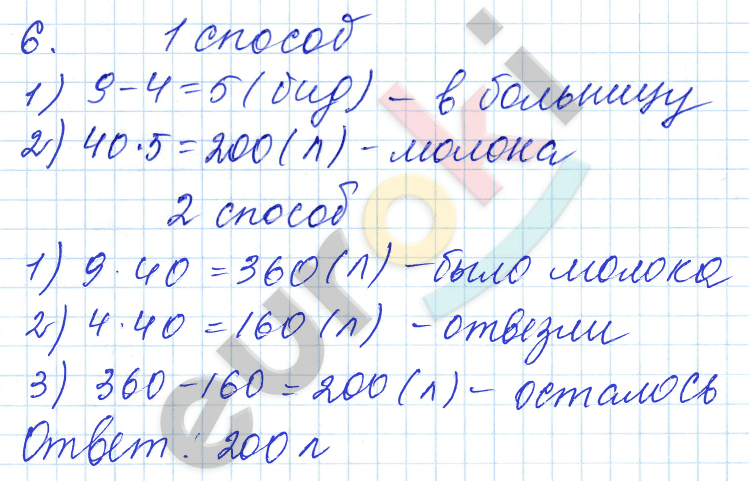 6. 1 способ
1) 9-4=5 (бид) - в больницу
2) 40·5=200 (л) - молока
2 способ
1) 9·40=360 (л) - было молока
2) 4·40=160 (л) - отвезли
3) 360-160=200 (л) - осталось
Ответ: 200 л
euroki